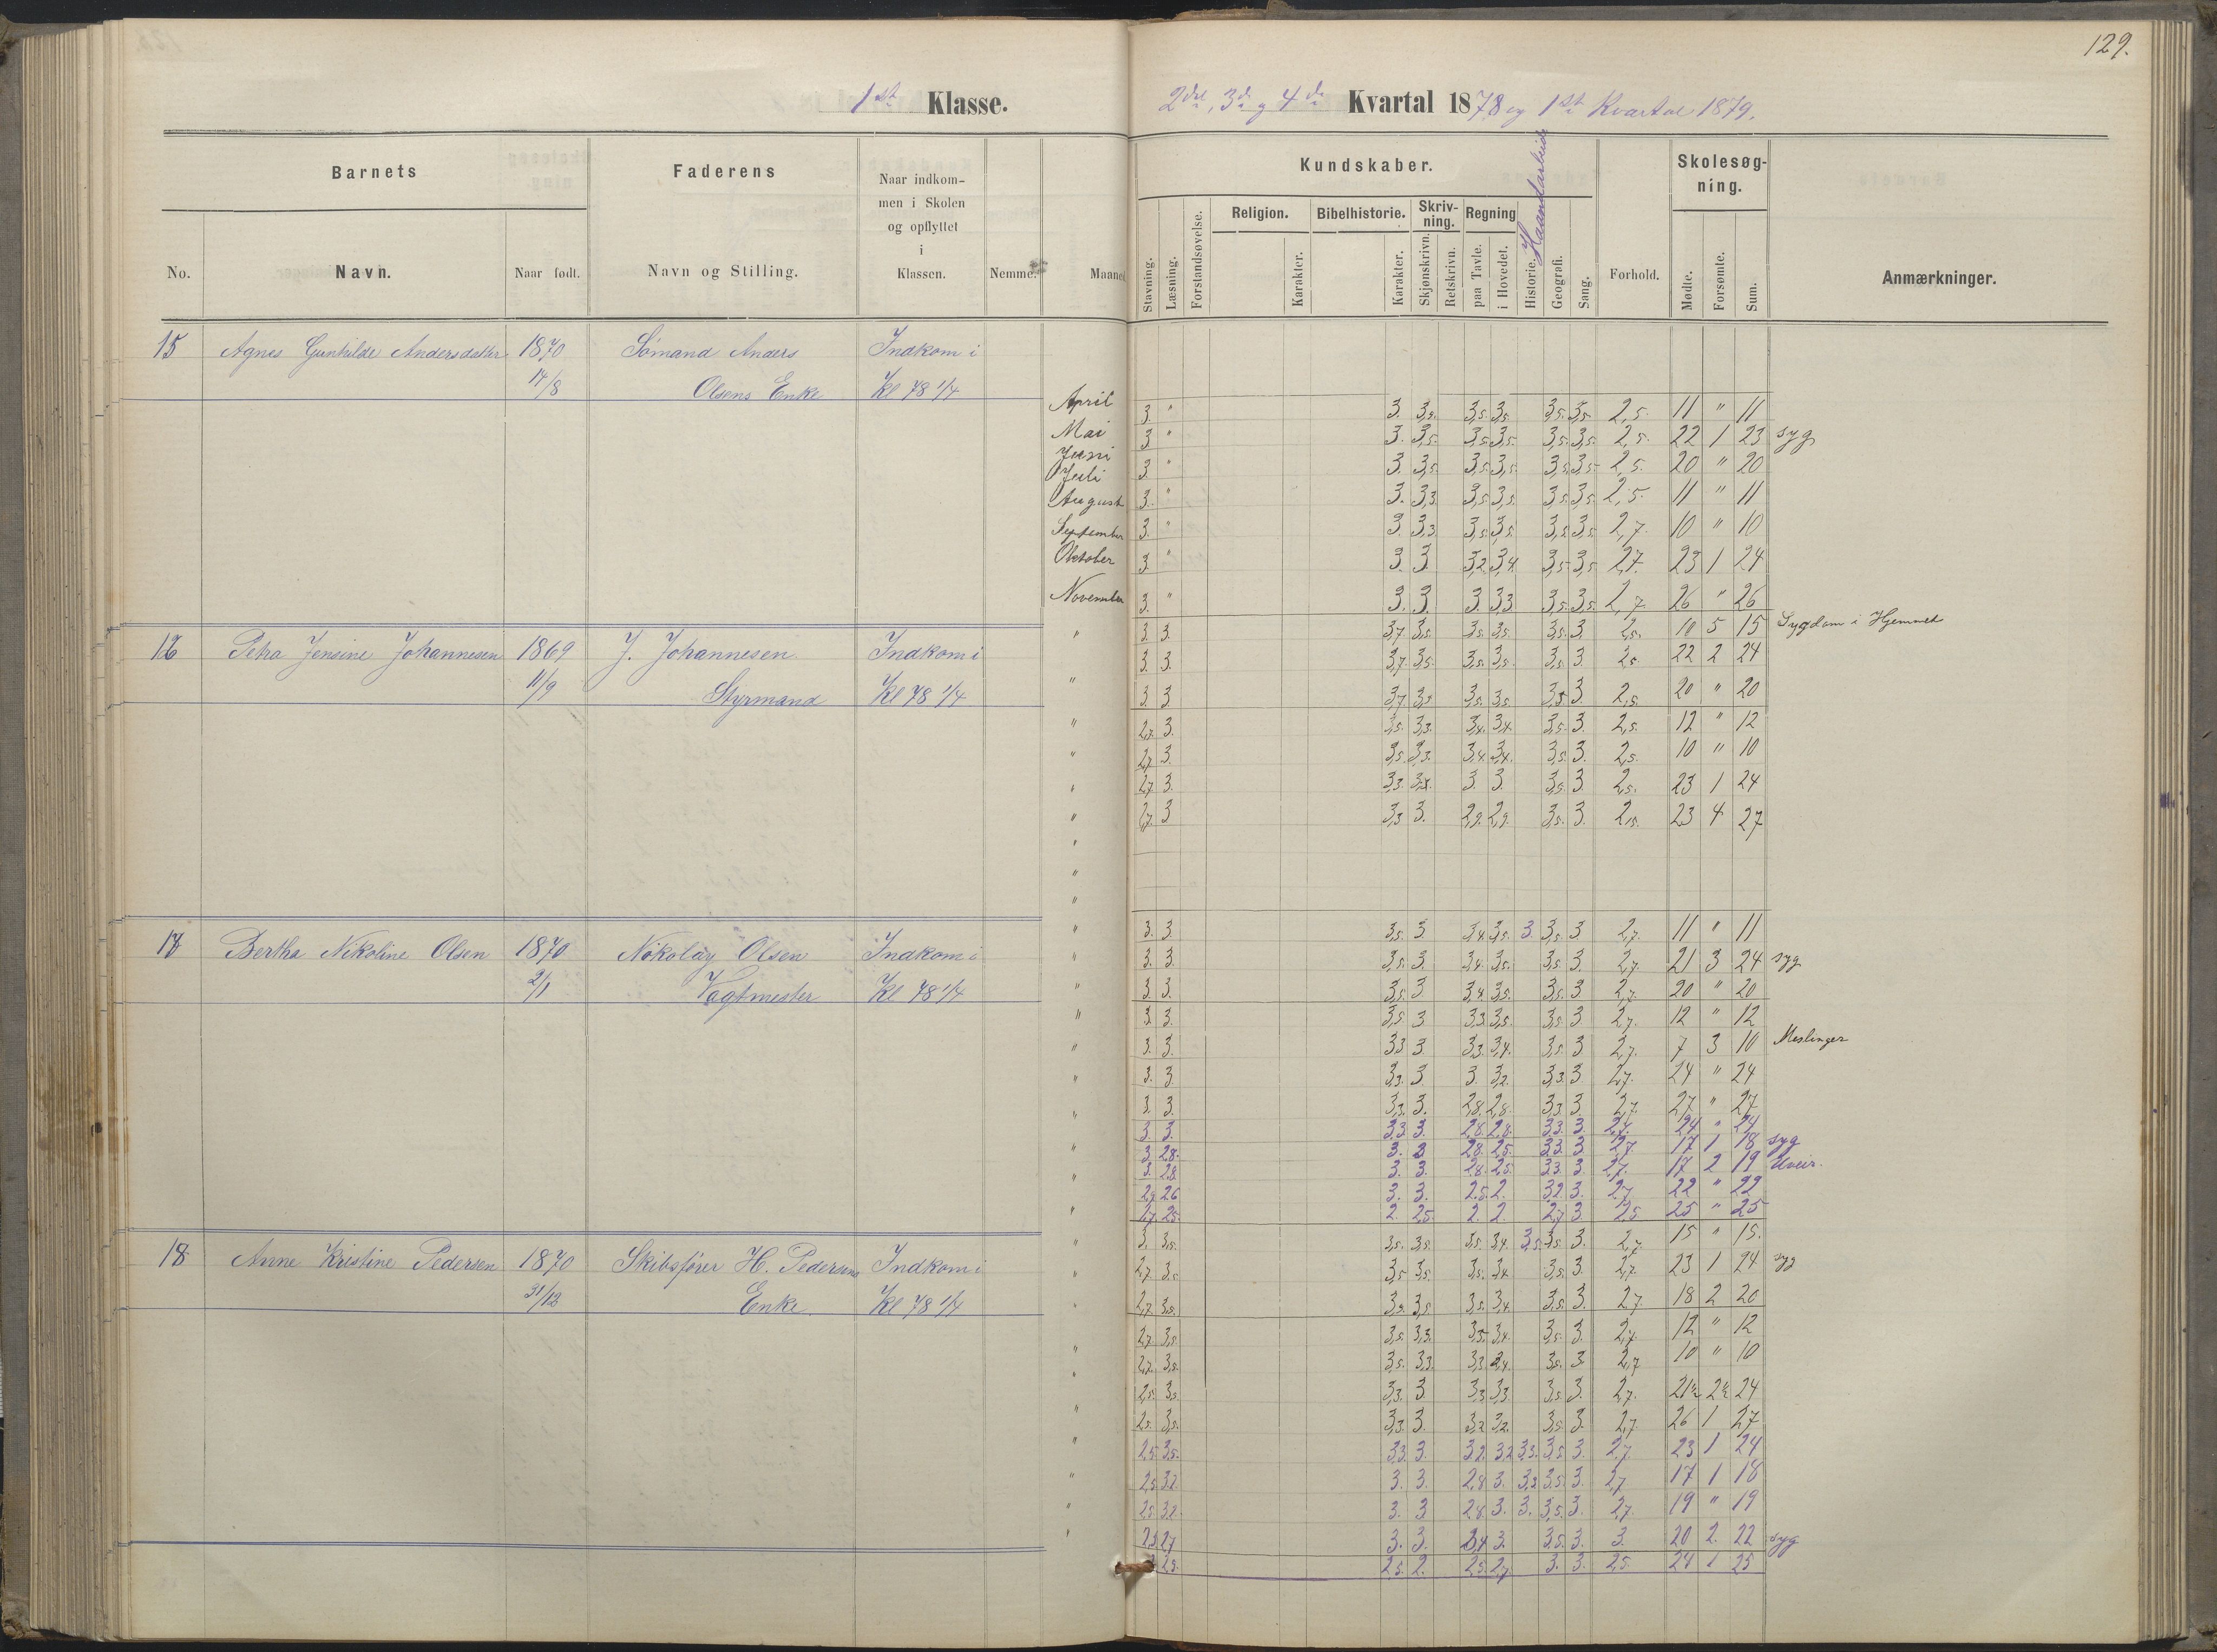 129.
1st Klasse.
2det, 3de og 4de Kvartal 1878 og 1ste Kvartal 1879.
Barnets
Faderens
Naar indkom-
men i Skolen
og opflyttet
i
Klassen.
No.
Navn.
Naar født.
Navn og Stilling.
Nemme.
Maaned
Kundskaber.
Haandarbeide
Stavning.
Læsning.
Forstandsøvelse.
Religion.
Karakter.
Bibelhistorie.
Karakter.
Skriv-
ning.
Skjønskrivn.
Retskrivn.
Regning
paa Tavle.
i Hovedet.
Historie.
Geografi.
Sang.
Forhold.
Skolesøg-
ning.
Mødte.
Forsømte.
Sum.
Anmærkninger.
15 Agnes Gunhilde Andersdatter 1870 Sømand Anders Indkom i
14/8 Olsens Enke Kl 78 1/4
April 3. " 3. 3,5. 3,5. 3,5. 3,5. 3,5. 2,5. 11 " 11
Mai 3 " 3. 3,5. 3,5. 3,5. 3,5. 3,5. 2,5. 22 1 23 syg
Juni
Juli 3 " 3. 3,5. 3,5. 3,5. 3,5. 3,5. 2,5. 20 " 20
August 3. " 3. 3,3 3,5. 3,5. 3,5. 3,5. 2,5. 11 " 11
September 3. " 3. 3,3 3,5. 3,5. 3,5. 3,5. 2,7. 10 " 10
Oktober 3. " 3. 3. 3,2. 3,4. 3,5. 3,5. 2,7. 23 1 24
November 3. " 3. 3. 3. 3,3 3,5. 3,5. 2,7. 26 " 26
" 3. 3. 3,7 3,5. 3,5. 3,5. 3,5. 3. 2,5. 10 5 15 Sygdom i Hjemmet
16 Petra Jensine Johannesen 1869 J. Johannesen Indkom i
3. 3. 3,7. 3,5. 3,5. 3,5. 3,5. 3. 2,5. 22 2 24
11/9 Styrmand Kl 78 1/4
" 3. 3 3,7 3,3 3,5. 3,5. 3,5 3 2,5. 20 " 20
" 2,7. 3. 3,5. 3,3. 3,4. 3,4. 3,5. 3. 2,5. 12 " 12
" 2,7. 3. 3,5. 3,3. 3,4. 3,4. 3,5. 3. 2,5. 10 " 10
" 2,7. 3. 3,3. 3. 3. 3,5. 3. 2,5. 23 1 24
" 2,7. 3 3,3 3. 2,9. 2,9. 3,5. 3. 2,5. 23 4 27
"
"
"
" 3. 3. 3,5. 3. 3,4. 3,5. 3. 3,5. 3 2,7. 11 " 11
17 Bertha Nikoline Olsen 1870 Nikolay Olsen Indkom i
" 3. 3. 3,5. 3. 3,4. 3,5. 3,5. 3. 2,7. 21 3 24 syg
2/1 Vagtmester Kl 78 1/4
" 3. 3. 3,5. 3 3,4. 3,5. 3,5. 3 2,7. 20 " 20
" 3. 3. 3,5 3 3,3 3,5. 3,5. 3 2,7. 12 " 12
" 3. 3. 3,3 3 3,3. 3,4. 3,5. 3 2,7. 7 3 10 Meslinger
" 3. 3 3,3. 3 3. 3,2. 3,3. 3 2,7. 24 " 24
" 3. 3. 3,3. 3. 2,8. 2,8. 3,3. 3. 2,7. 27 " 27
3. 3. 3,3. 3. 2,8. 2,8. 3,3. 3. 2,7. 24 " 24
" 3. 2,8. 3. 3 2,8. 2,5. 3,3. 3 2,7. 17 1 18 syg
" 3. 2,8 3. 3. 2,8. 2,5. 3,3. 3. 2,7. 17 2 19 Uveir.
2,7. 2,6 3. 3. 2,5. 2. 3,2. 3. 2,7 22 " 22
" 2,7. 2,5. 2. 2,5. 2. 2. 2,7 3 2,5 25 " 25
" 3. 3,5. 3,5. 3,5. 3,5. 3,4. 3,5. 3,5. 3. 2,7. 15 " 15.
18 Anne Kristine Pedersen 1870 Skibsfører H. Pedersens Indkom i
" 2,7. 3,5. 3,5 3,5. 3,5. 3,4. 3,5. 3. 2,7. 23 1 24 syg
31/12 Enke Kl 78 1/4
2,7. 3,5. 3,5. 3,5 3,5. 3,4 3,5. 3. 2,7. 18 2 20
2,7. 3,5. 3,5. 3,3. 3,5. 3,4. 3,5. 3. 2,7. 12 " 12
" 2,7. 3,5. 3,5. 3,3. 3,3 3,4. 3,5. 3 2,7 10 " 10
" 2,5. 3,5. 3,3. 3 3,3 3,3. 3,5. 3. 2,7. 21½ 2½ 24
" 2,5. 3,5. 3,3. 3 3,2 3,2. 3,5. 3. 2,7 26 1 27
" 2,5. 3,5. 3,3. 3. 3,2. 3,2 3,3. 3,5. 3. 2,7. 23 1 24
" 2,5. 3,2. 3. 3. 2,8 3. 3,3 3,5. 3. 2,7 17 1 18
" 2,5. 3,2. 3. 3 2,8. 3. 3. 3,5. 3. 2,7. 19 " 19
" 2,3. 2,7 3. 3. 2,4 3. 3,5. 3. 3. 20 2. 22 syg
2,5. 2,5. 2. 2,5. 2,7. 3. 3. 2,5. 24 1 25